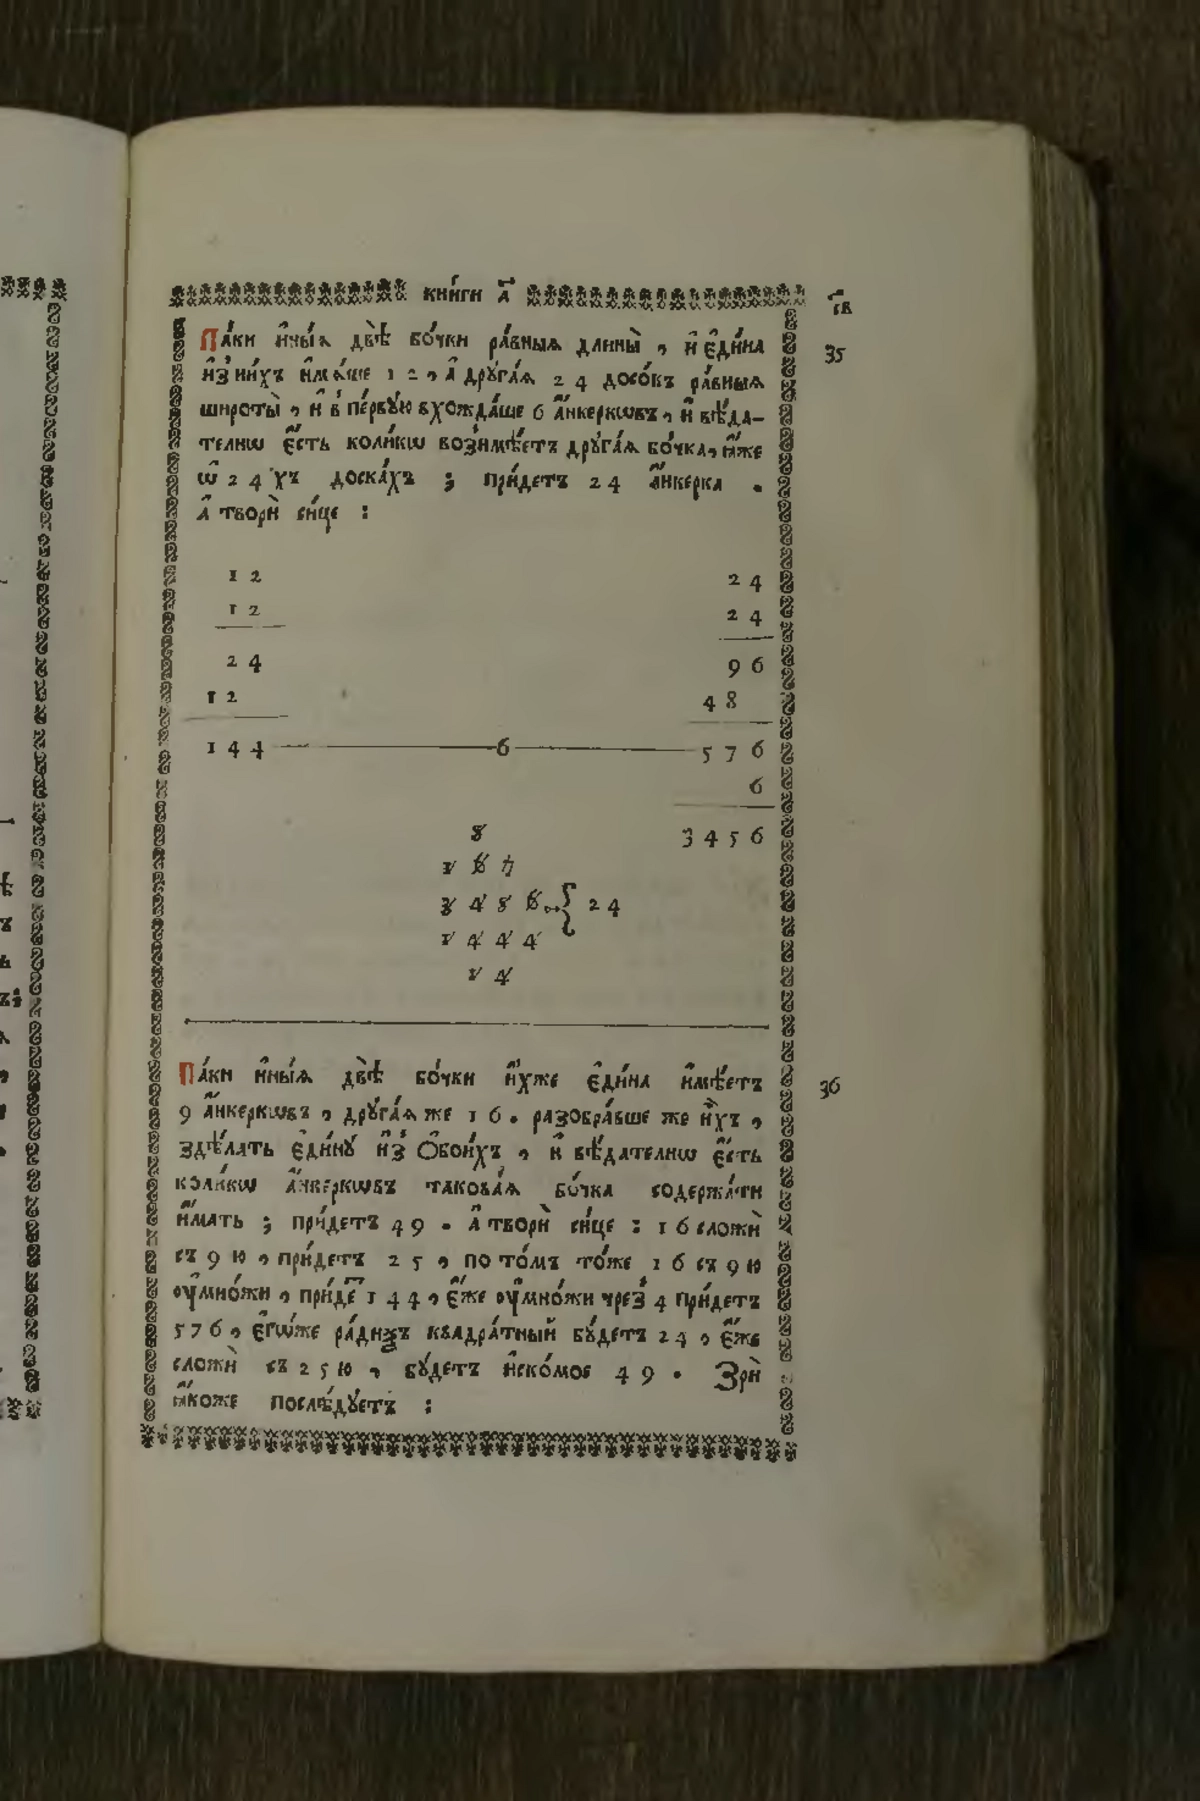 кни́ги а҃
с҃в
Па́ки и҆ны́ѧ двѣ̀ бо́чки ра́вныѧ длины̀ , и҆ є҆ди́на
35
и҆з̾ ни́хъ и҆мѧ́ше 12 , а҆ дрꙋга́ѧ 24 досо́къ ра́вныѧ
широты̀ , и҆ в̾ пе́рвꙋю вхожда́ше 6 а҆́нкеркѡвъ , и҆ вѣ́да-
телнѡ є҆́сть коли́кѡ воз̾имѣ́етъ дрꙋга́ѧ бо́чка , ꙗ҆́же
ѡ҆ 24 хъ доска́хъ ; прі́идетъ 24 а҆́нкерка .
а҆ творѝ си́це :
12 24
12 24
24 96
12 48
144 6 576
6
8 3456
1 6 7
3 4 8 6 { 24
1 4 4 4
1 4
Па́ки и҆ны́ѧ двѣ̀ бо́чки и҆́хже є҆ди́на и҆мѣ́етъ
36
9 а҆́нкеркѡвъ , дрꙋга́ѧ же 16 . разобра́вше же и҆̀хъ ,
здѣ́лать є҆ди́нꙋ и҆з̾ ѻ҆бои́хъ , и҆ вѣ́дателнѡ є҆́сть
коли́кѡ а҆́нкеркѡвъ такова́ѧ бо́чка содержа́ти
и҆́мать ; при́детъ 49 . а҆ творѝ си́це : 16 сложѝ
съ 9 ю , при́детъ 25 , по то́мъ то́же 16 съ 9 ю
ᲂу҆мно́жи , при́де 144 , є҆́же ᲂу҆мно́жи чрез̾ 4 при́детъ
576 , є҆гѡ́же ра́диѯъ квадра́тный бꙋ́детъ 24 , є҆́же
сложѝ съ 25 ю , бꙋ́детъ и҆ско́мое 49 . Зрѝ
ꙗ҆́коже послѣ́дꙋетъ :